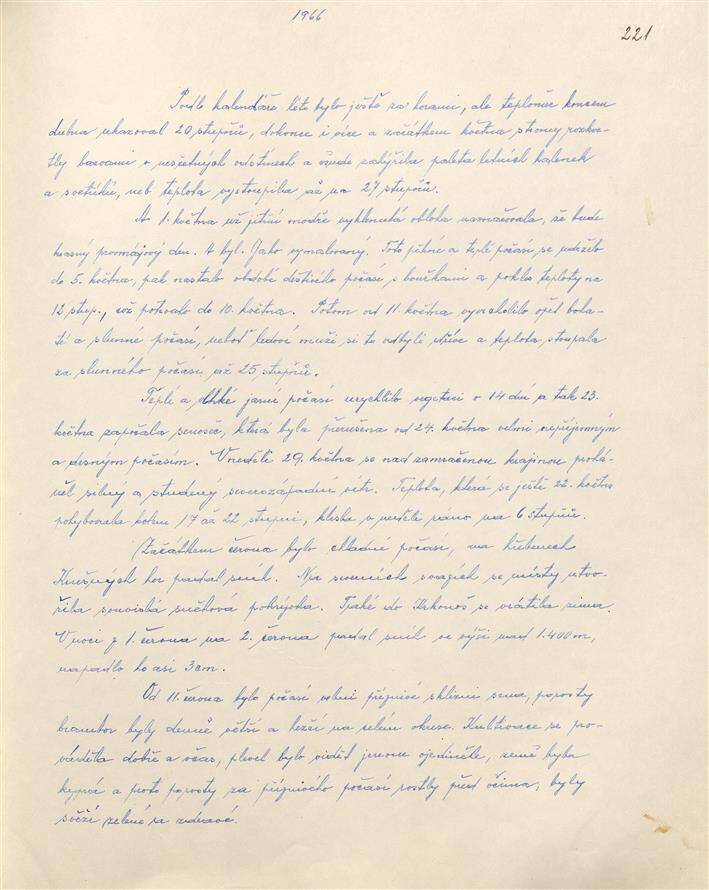 1966
221
Podle kalendáře léto bylo ještě za horami, ale teploměr koncem
dubna ukazoval 20 stupňů, dokonce i více a začátkem května stromy rozkve-
tly barvami v nesčetných odstínech a všude zahýřila paleta letních halenek
a svetříků, neb teplota vystoupila až na 27 stupňů.
A 1. května už jitřní modře vyklenutá obloha naznačovala, že bude
krásný prvomájový den. A byl. Jako vymalovaný. Toto pěkné a teplé počasí se udrželo
do 5. května, pak nastalo období deštivého počasí s bouřkami a pokles teploty na
12 stup., což potrvalo do 10. května. Potom od 11. května vyvrcholilo opět
a slunné počasí, neboť ledoví muži si to odbyli dříve a teplota stoupala
za slunného počasí až 25 stupňů.
Teplé a vlhké jarní počasí urychlilo vegetaci o 14 dní a tak 23.
května započala senoseč, která byla přerušena od 24. května velmi nepříjemným
a počasím. V neděli 29. května se nad zamračenou krajinou prohá-
něl silný a studený severozápadní vítr. Teplota, která se ještě 22. května
pohybovala kolem 17 až 22 stupni, klesla v neděli ráno na 6 stupňů.
Začátkem června bylo chladné počasí, na hřebenech
Krušných hor padal sníh. Na severních svazích se místy utvo-
řila souvislá sněhová pokrývka. Také do Krkonoš se vrátila zima.
V noci z 1. června na 2. června padal sníh ve výši nad 1.400 m,
napadlo ho asi 3 cm.
Od 11. června bylo počasí velmi příznivé sklizni sena, porosty
brambor byly denně větší a hezčí na celém okrese. Kultivace se pro-
váděla dobře a včas, plevel bylo vidět jenom ojediněle, země byla
kyprá a proto porosty za příznivého počasí rostly před očima, byly
svěží zelené a zdravé.